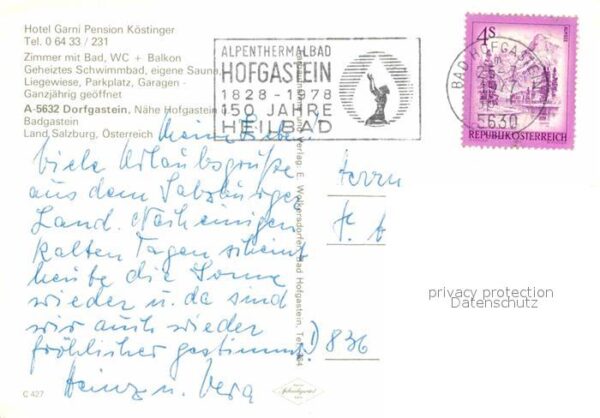 Hotel Garni Pension Köstinger
Tel. 0 64 33 / 231
Zimmer mit Bad, WC + Balkon
Geheiztes Schwimmbad, eigene Sauna,
Liegewiese, Parkplatz, Garagen -
Ganzjährig geöffnet
A-5632 Dorfgastein, Nähe Hofgastein
Badgastein
Land Salzburg, Österreich
ALPENTHERMALBAD
HOFGASTEIN
1828-1978
150 JAHRE
HEILBAD
BAD HOFGASTEIN
5630
4S
REPUBLIK ÖSTERREICH
Meine Lieben!
Viele Urlaubsgrüße
aus dem Salzburger
Land. Nach einigen
kalten Tagen scheint
heute die Sonne
wieder u. da sind
wir auch wieder
fröhlicher gestimmt.
Heinz u. Vera
Verlag: E. Wolkersdorfer, Bad Hofgastein, Tel.
Herrn
D 836
privacy protection
Datenschutz
C 427